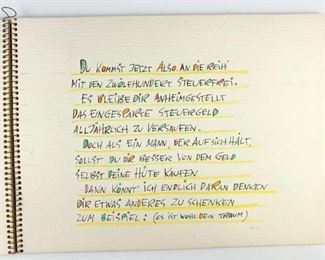 DU KOMMST JETZT ALSO AN DIE REIH'
MIT DEN ZWÖLFHUNDERT STEUERFREI.
ES BLEIBE DIR ANHEIMGESTELLT
DAS EINGESPARTE STEUERGELD
ALLJÄHRLICH ZU VERSAUFEN.
DOCH ALS EIN MANN, DER AUF SICH HÄLT,
SOLLST DU DIR BESSER VON DEM GELD
SELBST DEINE HÜTE KAUFEN
DANN KÖNNT' ICH ENDLICH DARAN DENKEN
DIR ETWAS ANDERES ZU SCHENKEN
ZUM BEISPIEL: (ES IST WOHL DEIN TRAUM)